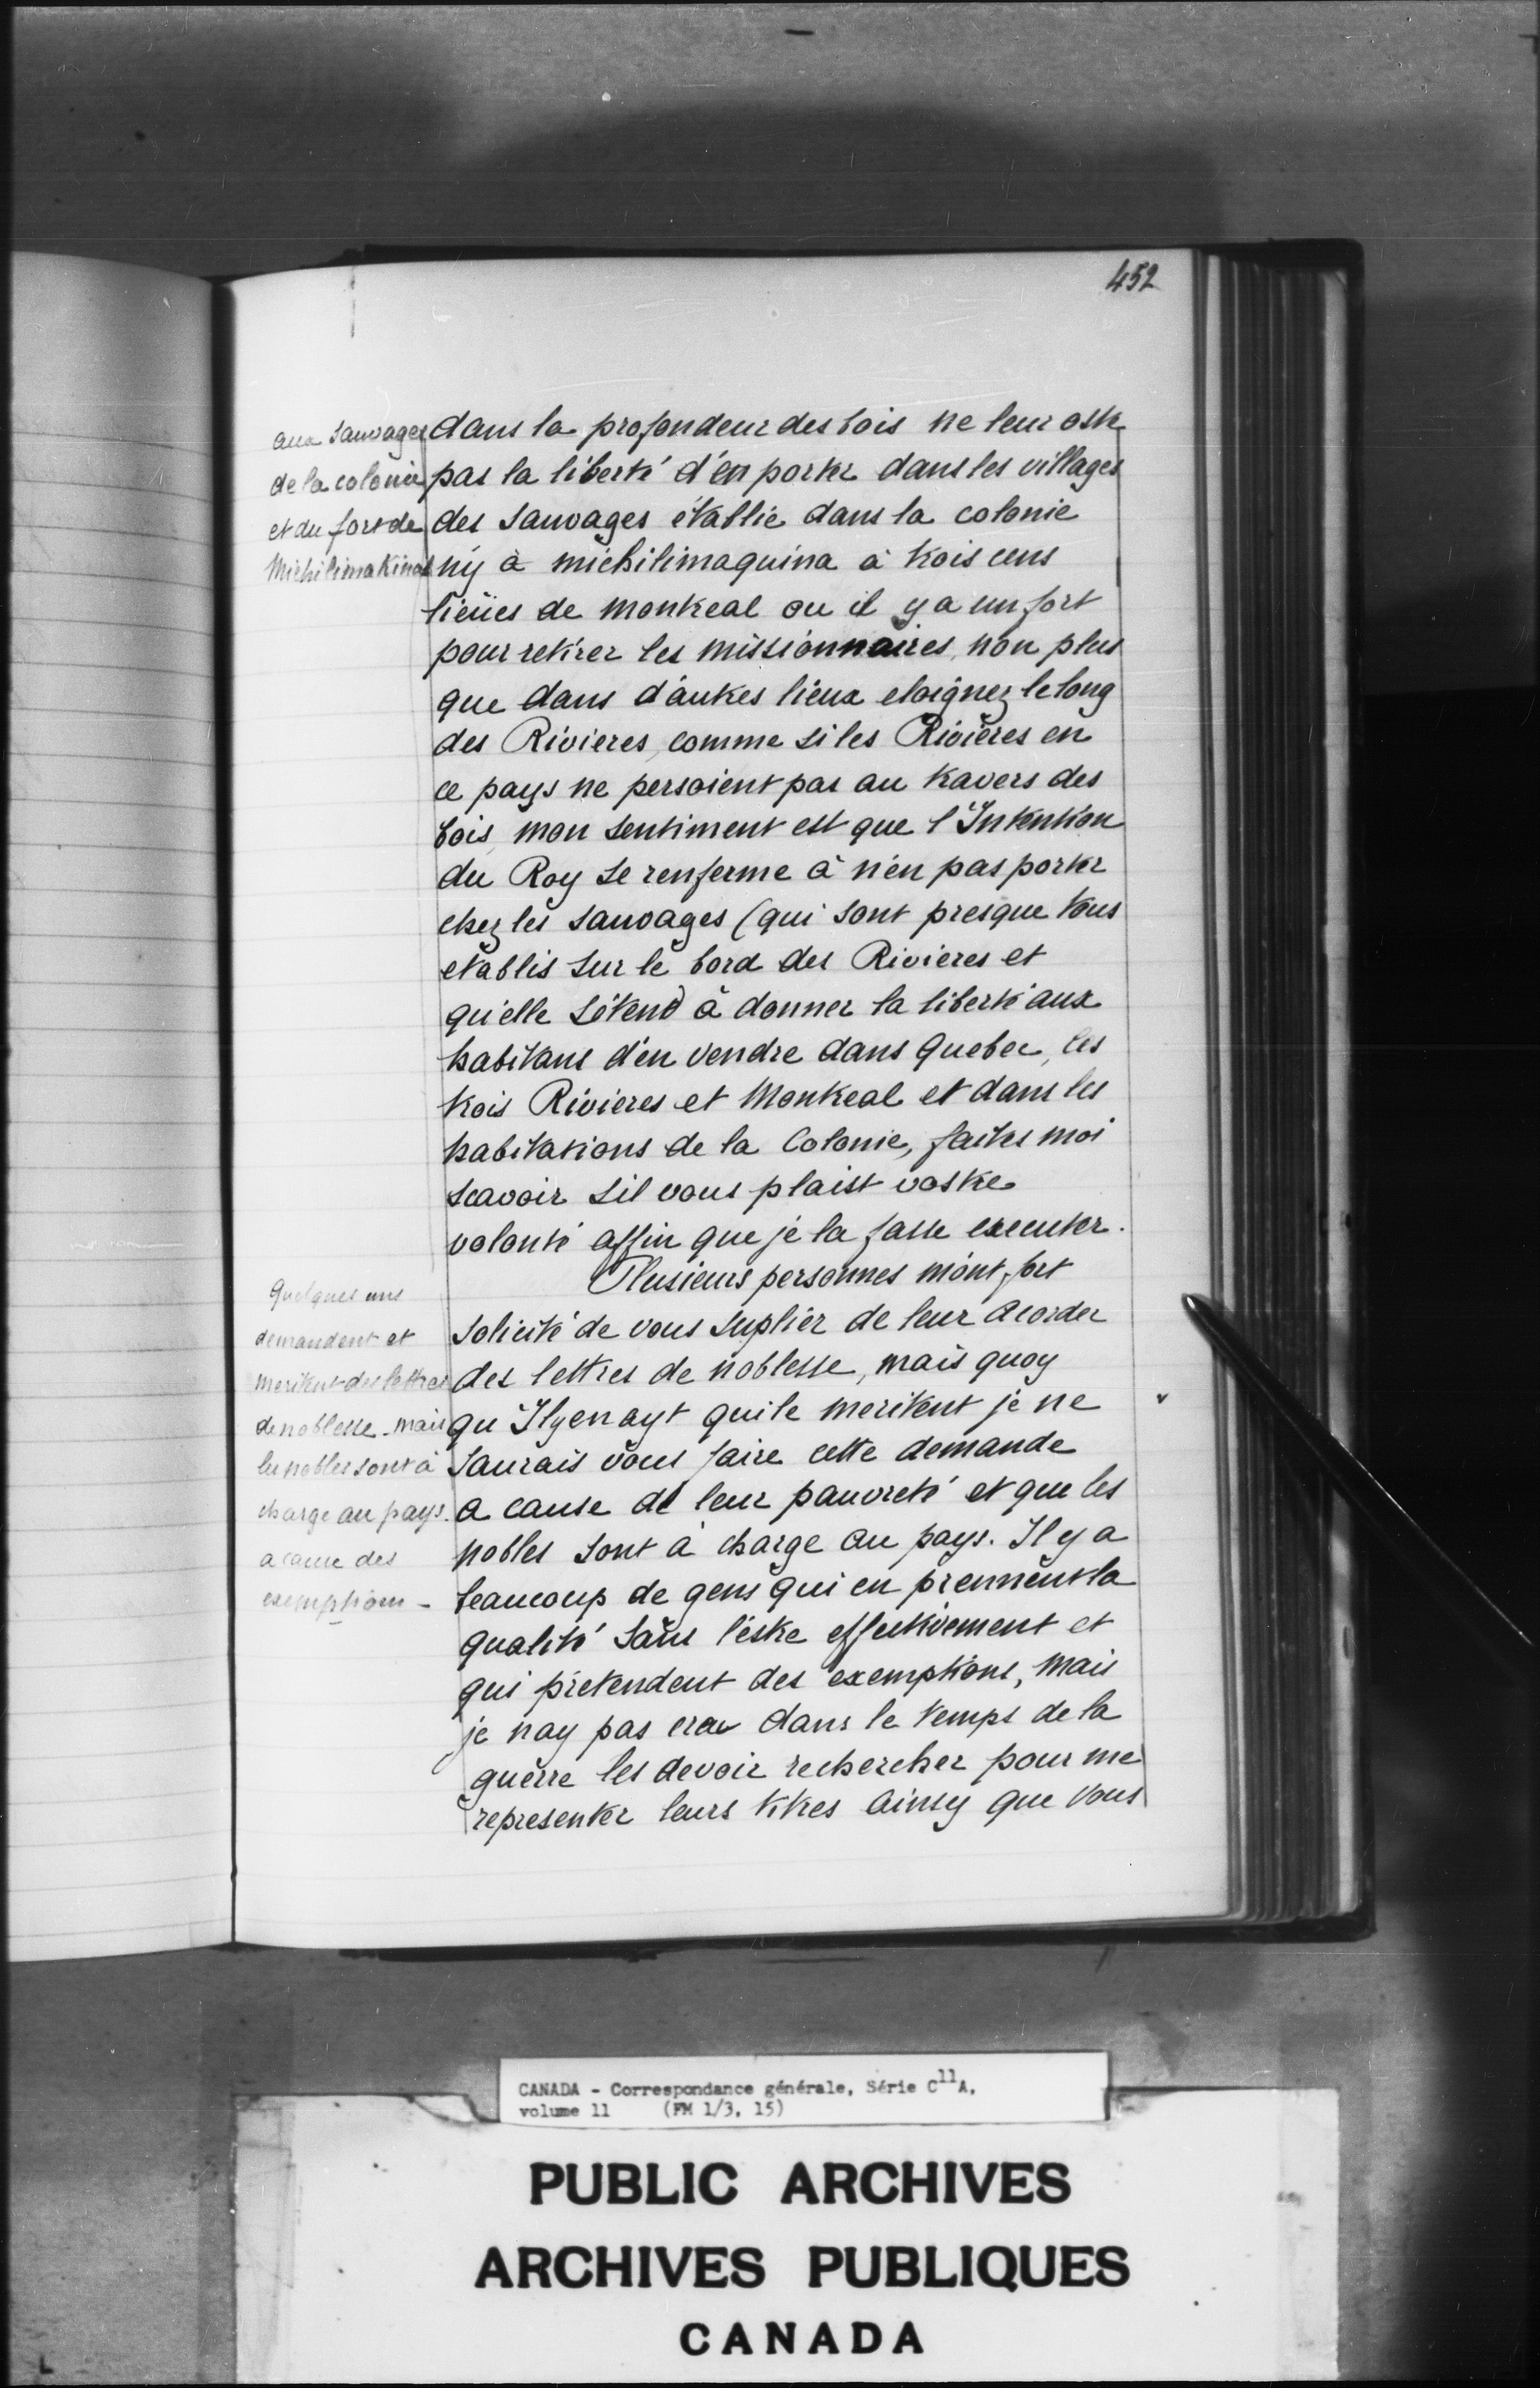 452
aux Sauvages
de la colonie
et du fort de
Michilimakinac
dans la profondeur des bois ne leur oste
pas la liberté d'en porter dans les villages
des Sauvages établie dans la colonie
ny à michilimaquina à trois cens
lieües de montreal ou il y a un fort
pour retirer les missionnaires, non plus
que dans d'autres lieux eloignez le long
des Rivieres, comme si les Rivières en
ce pays ne persoient pas au travers des
bois, mon sentiment est que l'Intention
du Roy se renferme à n'en pas porter
chez les sauvages (qui sont presque tous
etablis sur le bord des Rivieres et
qu'elle s'étend à donner la liberté aux
habitans d'en vendre dans Quebec, les
trois Rivieres et Montreal et dans les
habitations de la Colonie, faites moi
scavoir sil vous plaist vostre
volonté affin que je la fasse executer.
Quelques uns
demandent et
meritent des lettres
de noblesse mais
les nobles sont à
charge au pays.
a cause des
exemptions -
Plusieurs personnes m'ont fort
solicité de vous suplier de leur acorder
des lettres de noblesse, mais quoy
qu'Ilyenayt qui le meritent je ne
saurais vous faire cette demande
a cause de leur pauvreté et que les
nobles sont à charge au pays. Il y a
beaucoup de gens qui en prennent la
qualité sans l'estre effectivement et
qui prétendent des exemptions, mais
je nay pas cru dans le temps de la
guerre les devoir rechercher pour me
representer leurs titres ainsy que vous
CANADA - Correspondance générale, Série C11A,
volume 11 (FM 1/3, 15)
PUBLIC ARCHIVES
ARCHIVES PUBLIQUES
CANADA
L